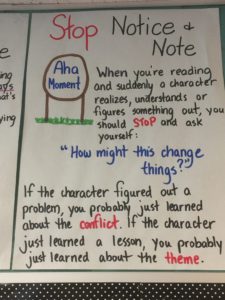 Stop Notice &
Note
Aha
Moment
When you're reading
and suddenly a character
realizes, understands or
figures something out, you
should STOP and ask
yourself:
"How might this change
things?"
If the character figured out a
problem, you probably just learned
about the conflict. If the character
just learned a lesson, you probably
just learned about the theme.